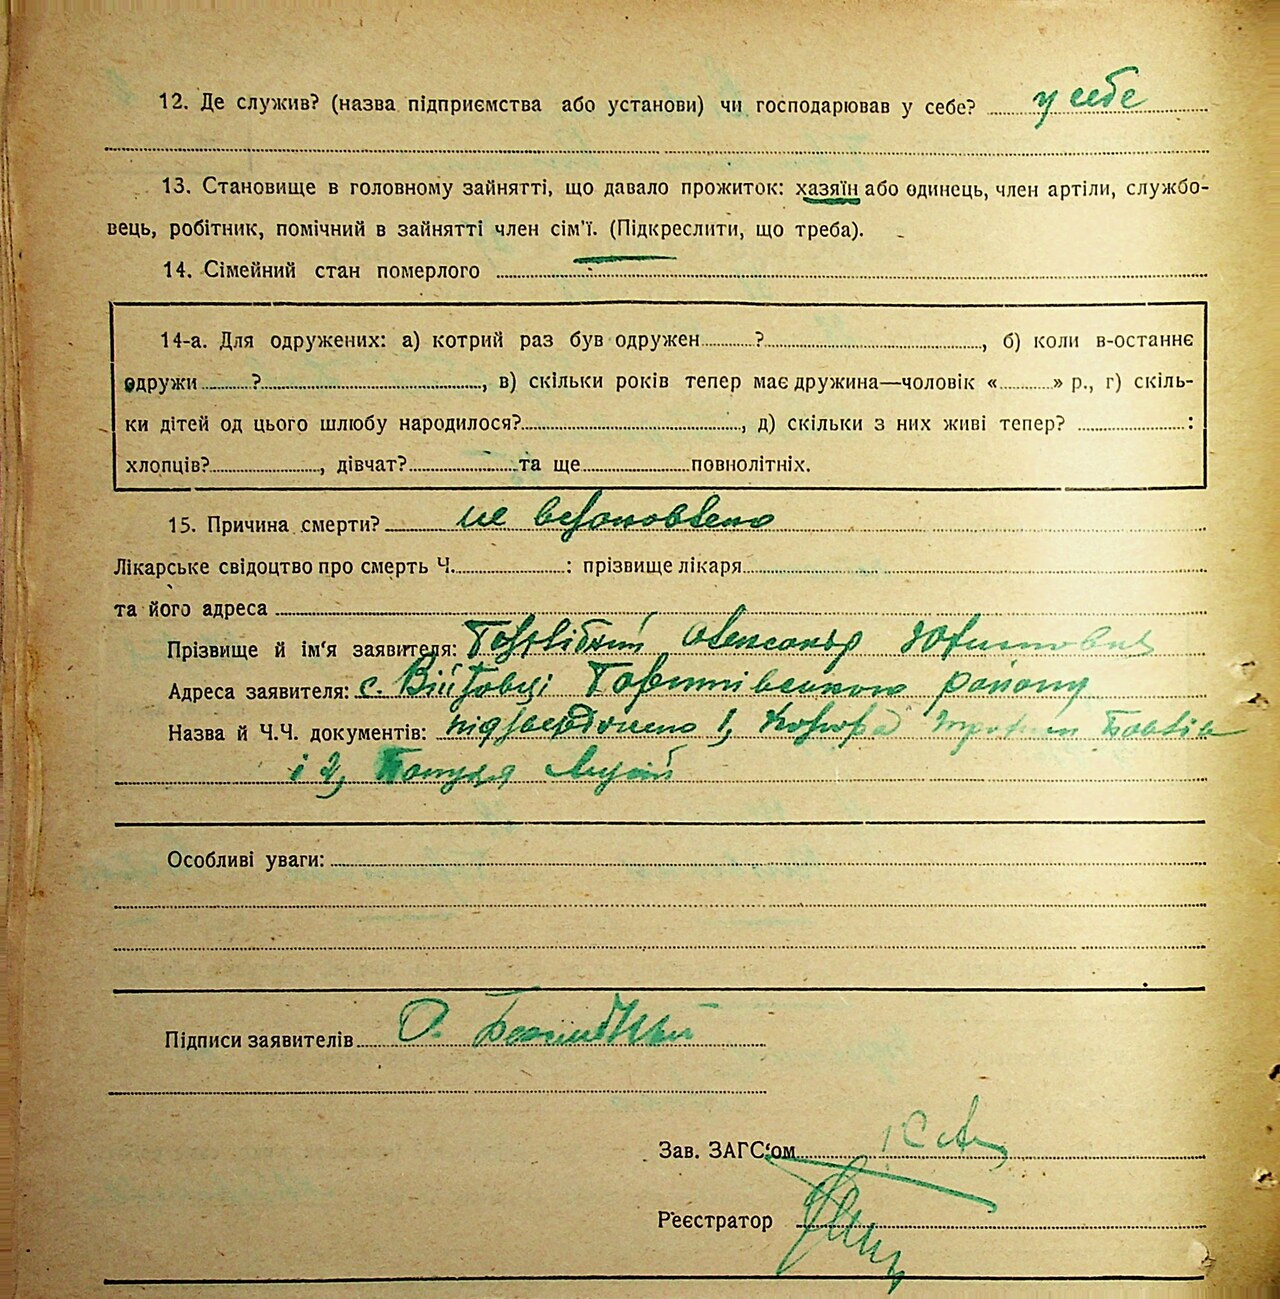 12. Де служив? (назва підприємства або установи) чи господарював у себе? у себе
13. Становище в головному зайнятті, що давало прожиток: хазяїн або одинець, член артіли, службо-
вець, робітник, помічний в зайнятті член сім'ї. (Підкреслити, що треба).
14. Сімейний стан померлого
14-а. Для одружених: а) котрий раз був одружен ?, б) коли в-останнє
одружи ?, в) скільки років тепер має дружина—чоловік « » р., г) скіль-
ки дітей од цього шлюбу народилося?, д) скільки з них живі тепер? :
хлопців?, дівчат? та ще повнолітніх.
15. Причина смерти? не встановлено
Лікарське свідоцтво про смерть Ч. : прізвище лікаря
та його адреса
Прізвище й ім'я заявителя: Олександр
Адреса заявителя: с. Війтовці району
Назва й Ч.Ч. документів: підтверджено 1,
і 2,
Особливі уваги:
Підписи заявителів О.
Зав. ЗАГС'ом
Реєстратор